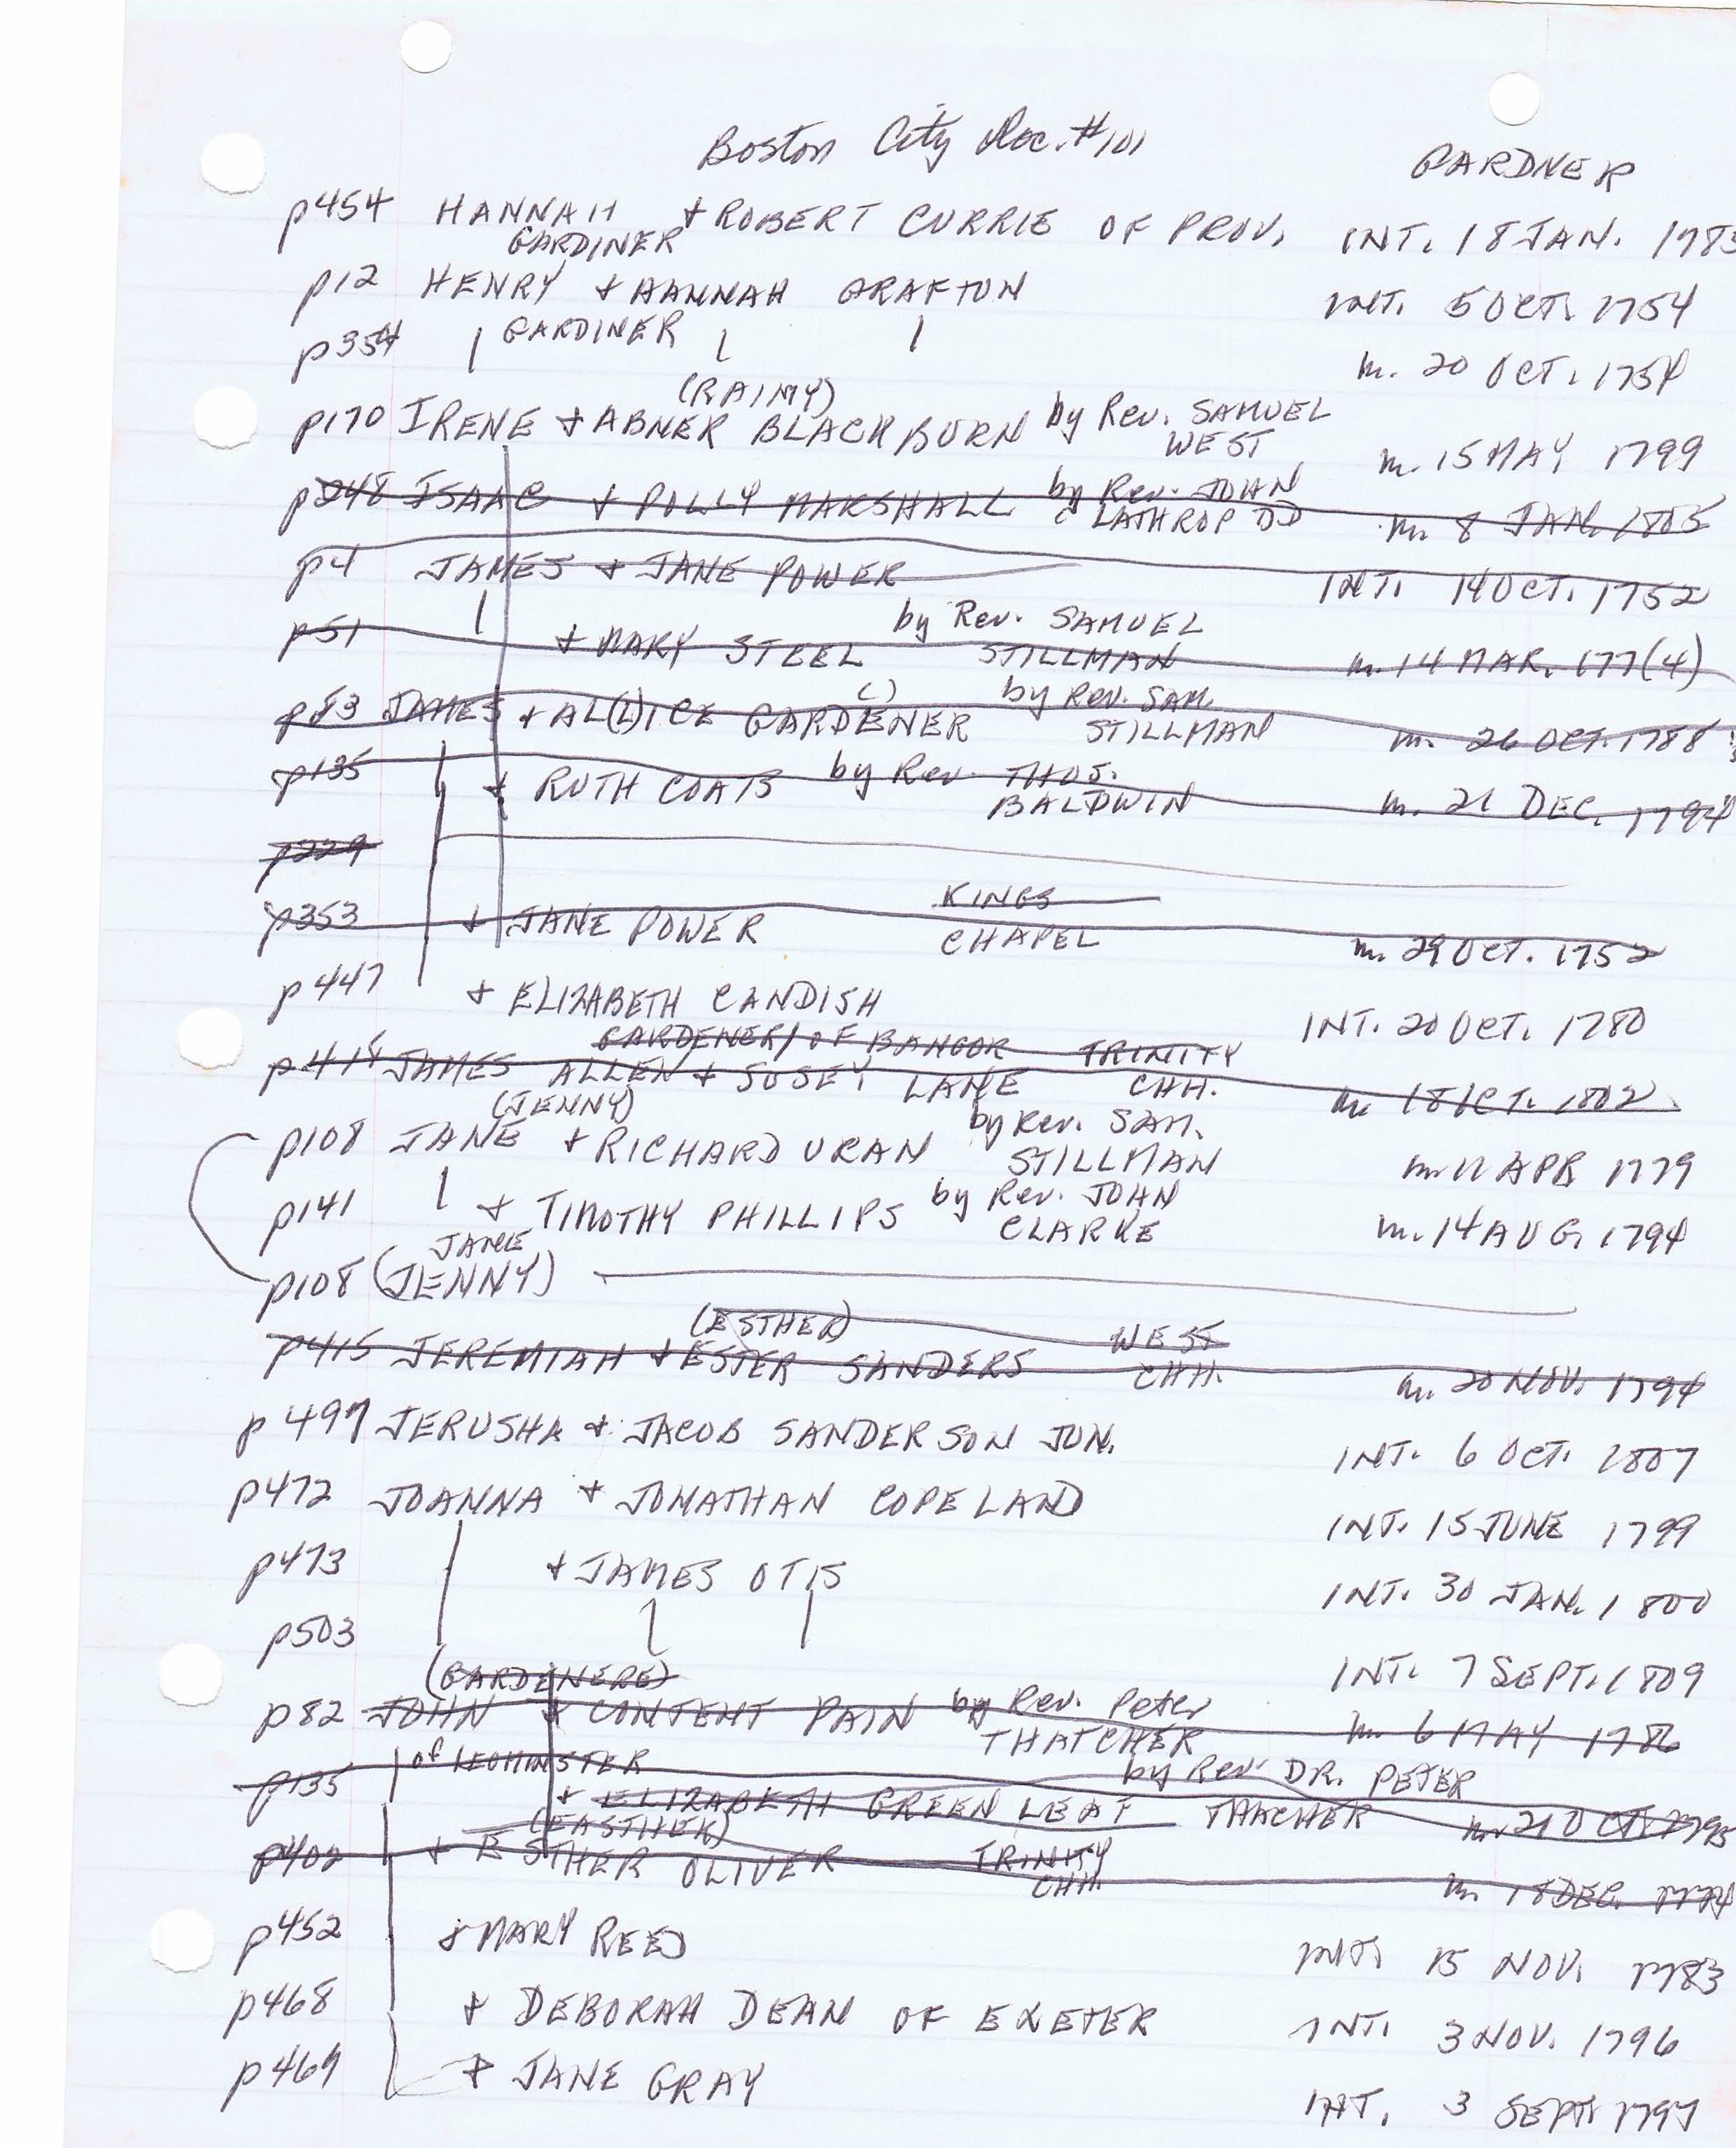 Boston City Doc. #101 GARDNER
p454 HANNAH + ROBERT CURRIE OF PROV. INT. 18 JAN. 1783
GARDINER
p12 HENRY + HANNAH GRAFTON INT. 5 OCT. 1754
p354 GARDINER m. 20 OCT. 1754
(RAINY)
p170 IRENE + ABNER BLACKBURN by Rev. SAMUEL WEST m. 15 MAY 1799
p248 ISAAC + POLLY MARSHALL by Rev. JOHN LATHROP DD m. 8 JAN. 1805
p4 JAMES + JANE POWER INT. 14 OCT. 1752
p51 + MARY STEEL by Rev. SAMUEL STILLMAN m. 14 MAR. 177(4)
p83 JAMES + AL(L)ICE GARDENER by Rev. SAM. STILLMAN m. 26 OCT. 1788
p135 + RUTH COATS by Rev. THOS. BALDWIN m. 21 DEC. 1794
p229
p353 + JANE POWER KINGS CHAPEL m. 29 OCT. 1752
p447 + ELIZABETH CANDISH INT. 20 OCT. 1780
GARDENER / OF BANGOR TRINITY
p414 JAMES ALLEN + SUSEY LANE CHH. m. 18 OCT. 1802
(JENNY)
p108 JANE + RICHARD URAN by Rev. SAM. STILLMAN m. 11 APR 1779
p141 + TIMOTHY PHILLIPS by Rev. JOHN CLARKE m. 14 AUG. 1794
JANE
p108 (JENNY)
(ESTHER) WEST
p415 JEREMIAH + ESTER SANDERS CHH. m. 20 NOV. 1794
p497 JERUSHA + JACOB SANDERSON JUN. INT. 6 OCT. 1807
p472 JOANNA + JONATHAN COPELAND INT. 15 JUNE 1799
p473 + JAMES OTIS INT. 30 JAN. 1800
p503 INT. 7 SEPT. 1809
(GARDENERE)
p82 JOHN + CONTENT PAIN by Rev. Peter THATCHER m. 6 MAY 1786
of LEOMINSTER by Rev. DR. PETER
p135 + ELIZABETH GREEN LEAF THACHER m. 21 OCT. 1795
(EASTHER) TRINITY
p402 + ESTHER OLIVER CHH. m. 18 DEC. 1774
p452 + MARY REED INT. 15 NOV. 1783
p468 + DEBORAH DEAN OF EXETER INT. 3 NOV. 1796
p469 + JANE GRAY INT. 3 SEPT. 1797